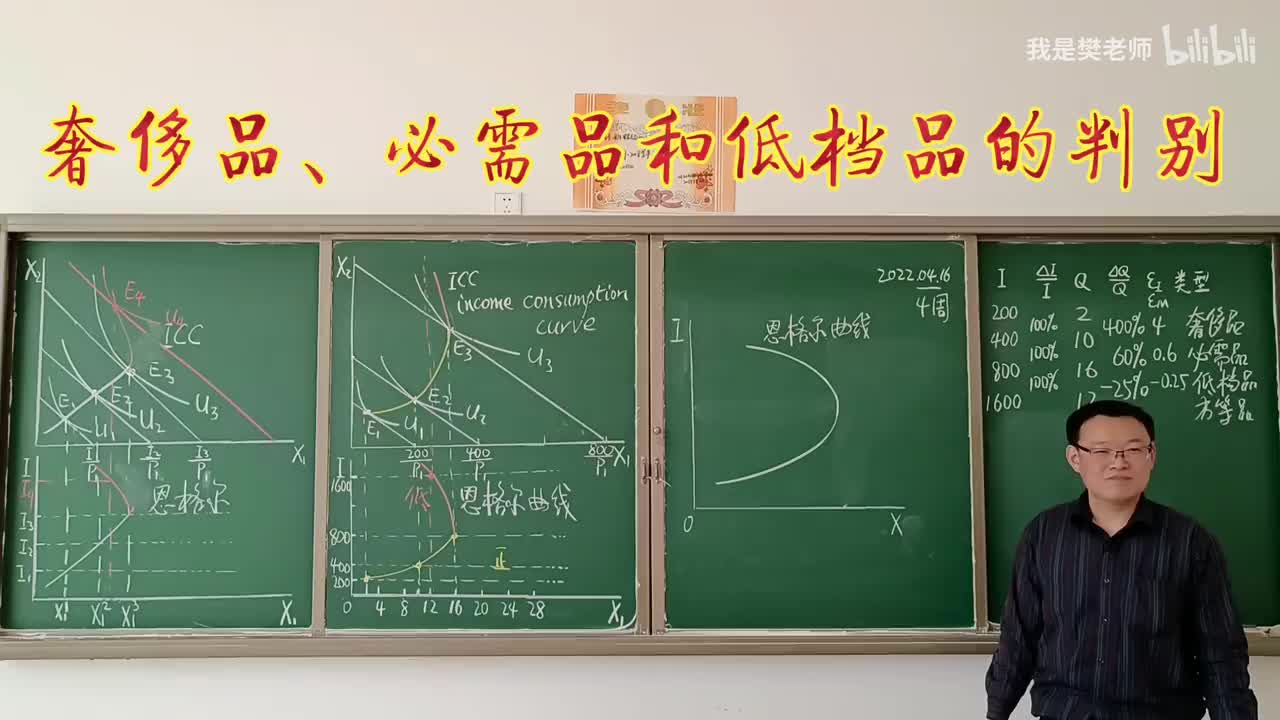 我是樊老师 bilibili
奢侈品、必需品和低档品的判别
X₂
E₄
U₄
ICC
E₁ E₂ E₃
U₁ U₂ U₃
X₁
I₁/P₁ I₂/P₁ I₃/P₁
I
I₄
I₃
I₂
I₁
恩格尔
X₁¹ X₁² X₁³ X₁
X₂
ICC
income consumption
curve
E₁ E₂ E₃
U₁ U₂ U₃
200/P₁ 400/P₁ 800/P₁ X₁
I
1600
800
400
200
低 恩格尔曲线
正
0 4 8 12 16 20 24 28 X₁
2022.04.16
4周
I 恩格尔曲线
0 X
I ΔI/I Q ΔQ/Q εI 类型
εm
200 2
100% 400% 4 奢侈品
400 10
100% 60% 0.6 必需品
800 16
100% -25% -0.25 低档品
1600 12 劣等品